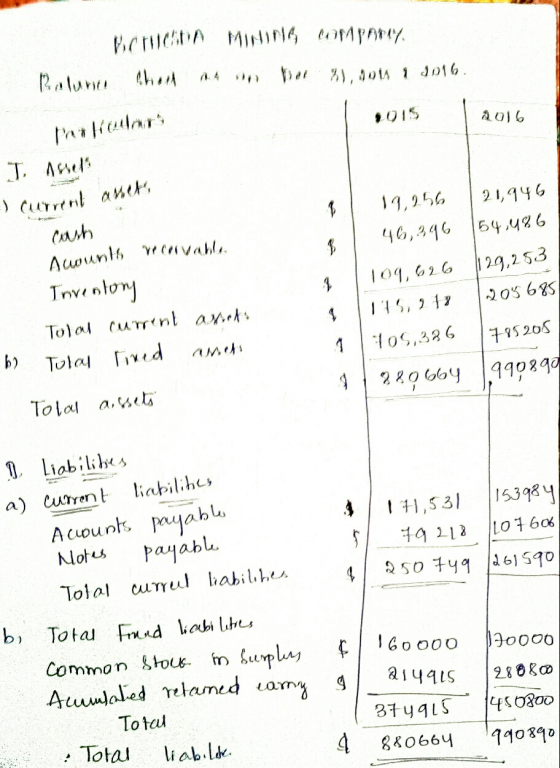 BETHESDA MINING COMPANY
Balance Sheet as on Dec 31, 2015 & 2016.
Particulars 2015 2016
I. Assets
) current assets
cash $ 19,256 21,946
Accounts receivable $ 46,396 54,486
Inventory $ 109,626 129,253
Total current assets $ 175,278 205685
b) Total Fixed assets $ 705,386 785205
Total assets $ 880664 990890
II. Liabilities
a) current liabilities
Accounts payable $ 171,531 153984
Notes payable $ 79218 107606
Total current liabilities $ 250749 261590
b, Total Fixed liabilities
Common Stock in Surplus $ 160000 170000
Acumulated retained earny $ 214915 280800
Total 374915 450800
: Total liabilite. $ 880664 990890